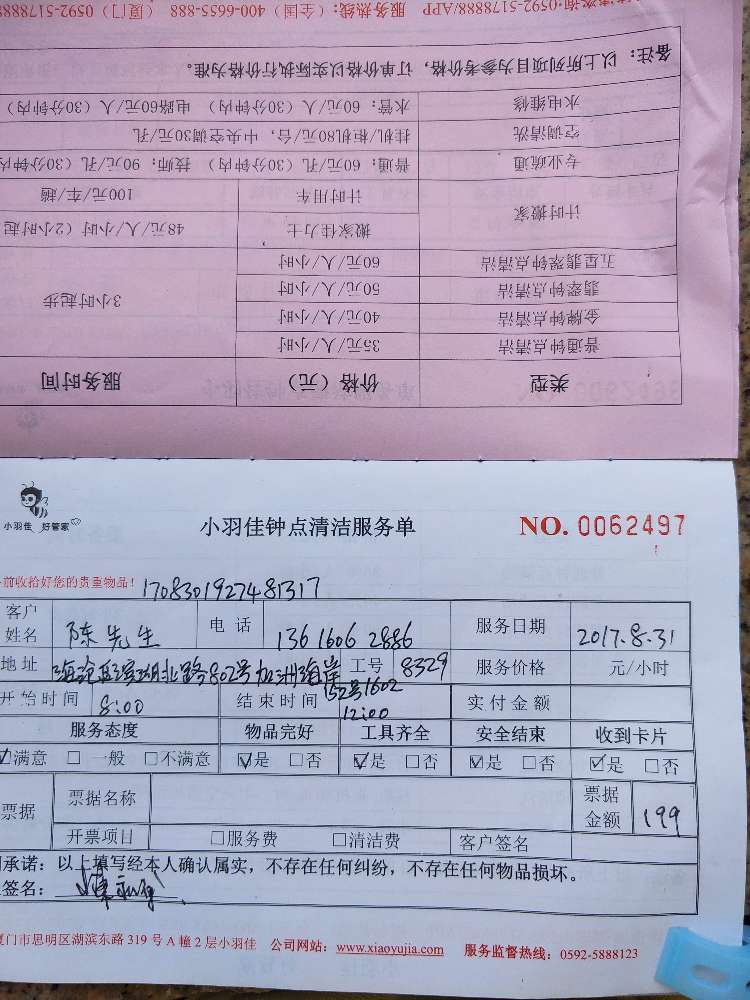 服务热线：（全国）400-6655-888 （厦门）0592-5178888/APP
备注： 以上所列项目为参考价格，订单价格以实际执行价格为准。
水电维修 水管：60元/人（30分钟内） 电路60元/人（30分钟内）
空调清洗 挂机/柜机80元/台，中央空调30元/孔
专业疏通 普通：60元/孔（30分钟内） 技师：90元/孔（30分钟内
计时搬家 计时用车 100元/车/趟
搬家佳力士 48元/人/小时（2小时起
五星翡翠钟点清洁 60元/人/小时
翡翠钟点清洁 50元/人/小时 3小时起步
金牌钟点清洁 40元/人/小时
普通钟点清洁 35元/人/小时
类型 价格（元） 服务时间
小羽佳 好管家 小羽佳钟点清洁服务单 NO. 0062497
前收拾好您的贵重物品！ 1708301927481317
客户姓名 陈先生 电话 13616062886 服务日期 2017.8.31
地址 海沧区滨湖北路802号加洲海岸 152号1602 工号 8329 服务价格 元/小时
开始时间 8:00 结束时间 12:00 实付金额
服务态度 物品完好 工具齐全 安全结束 收到卡片
☑满意 □ 一般 □不满意 ☑是 □否 ☑是 □否 ☑是 □否 ☑是 □否
票据 票据名称 票据金额 199
开票项目 □服务费 □清洁费 客户签名
承诺：以上填写经本人确认属实，不存在任何纠纷，不存在任何物品损坏。
签名：
厦门市思明区湖滨东路 319 号 A 幢 2 层小羽佳 公司网站：www.xiaoyujia.com 服务监督热线：0592-5888123